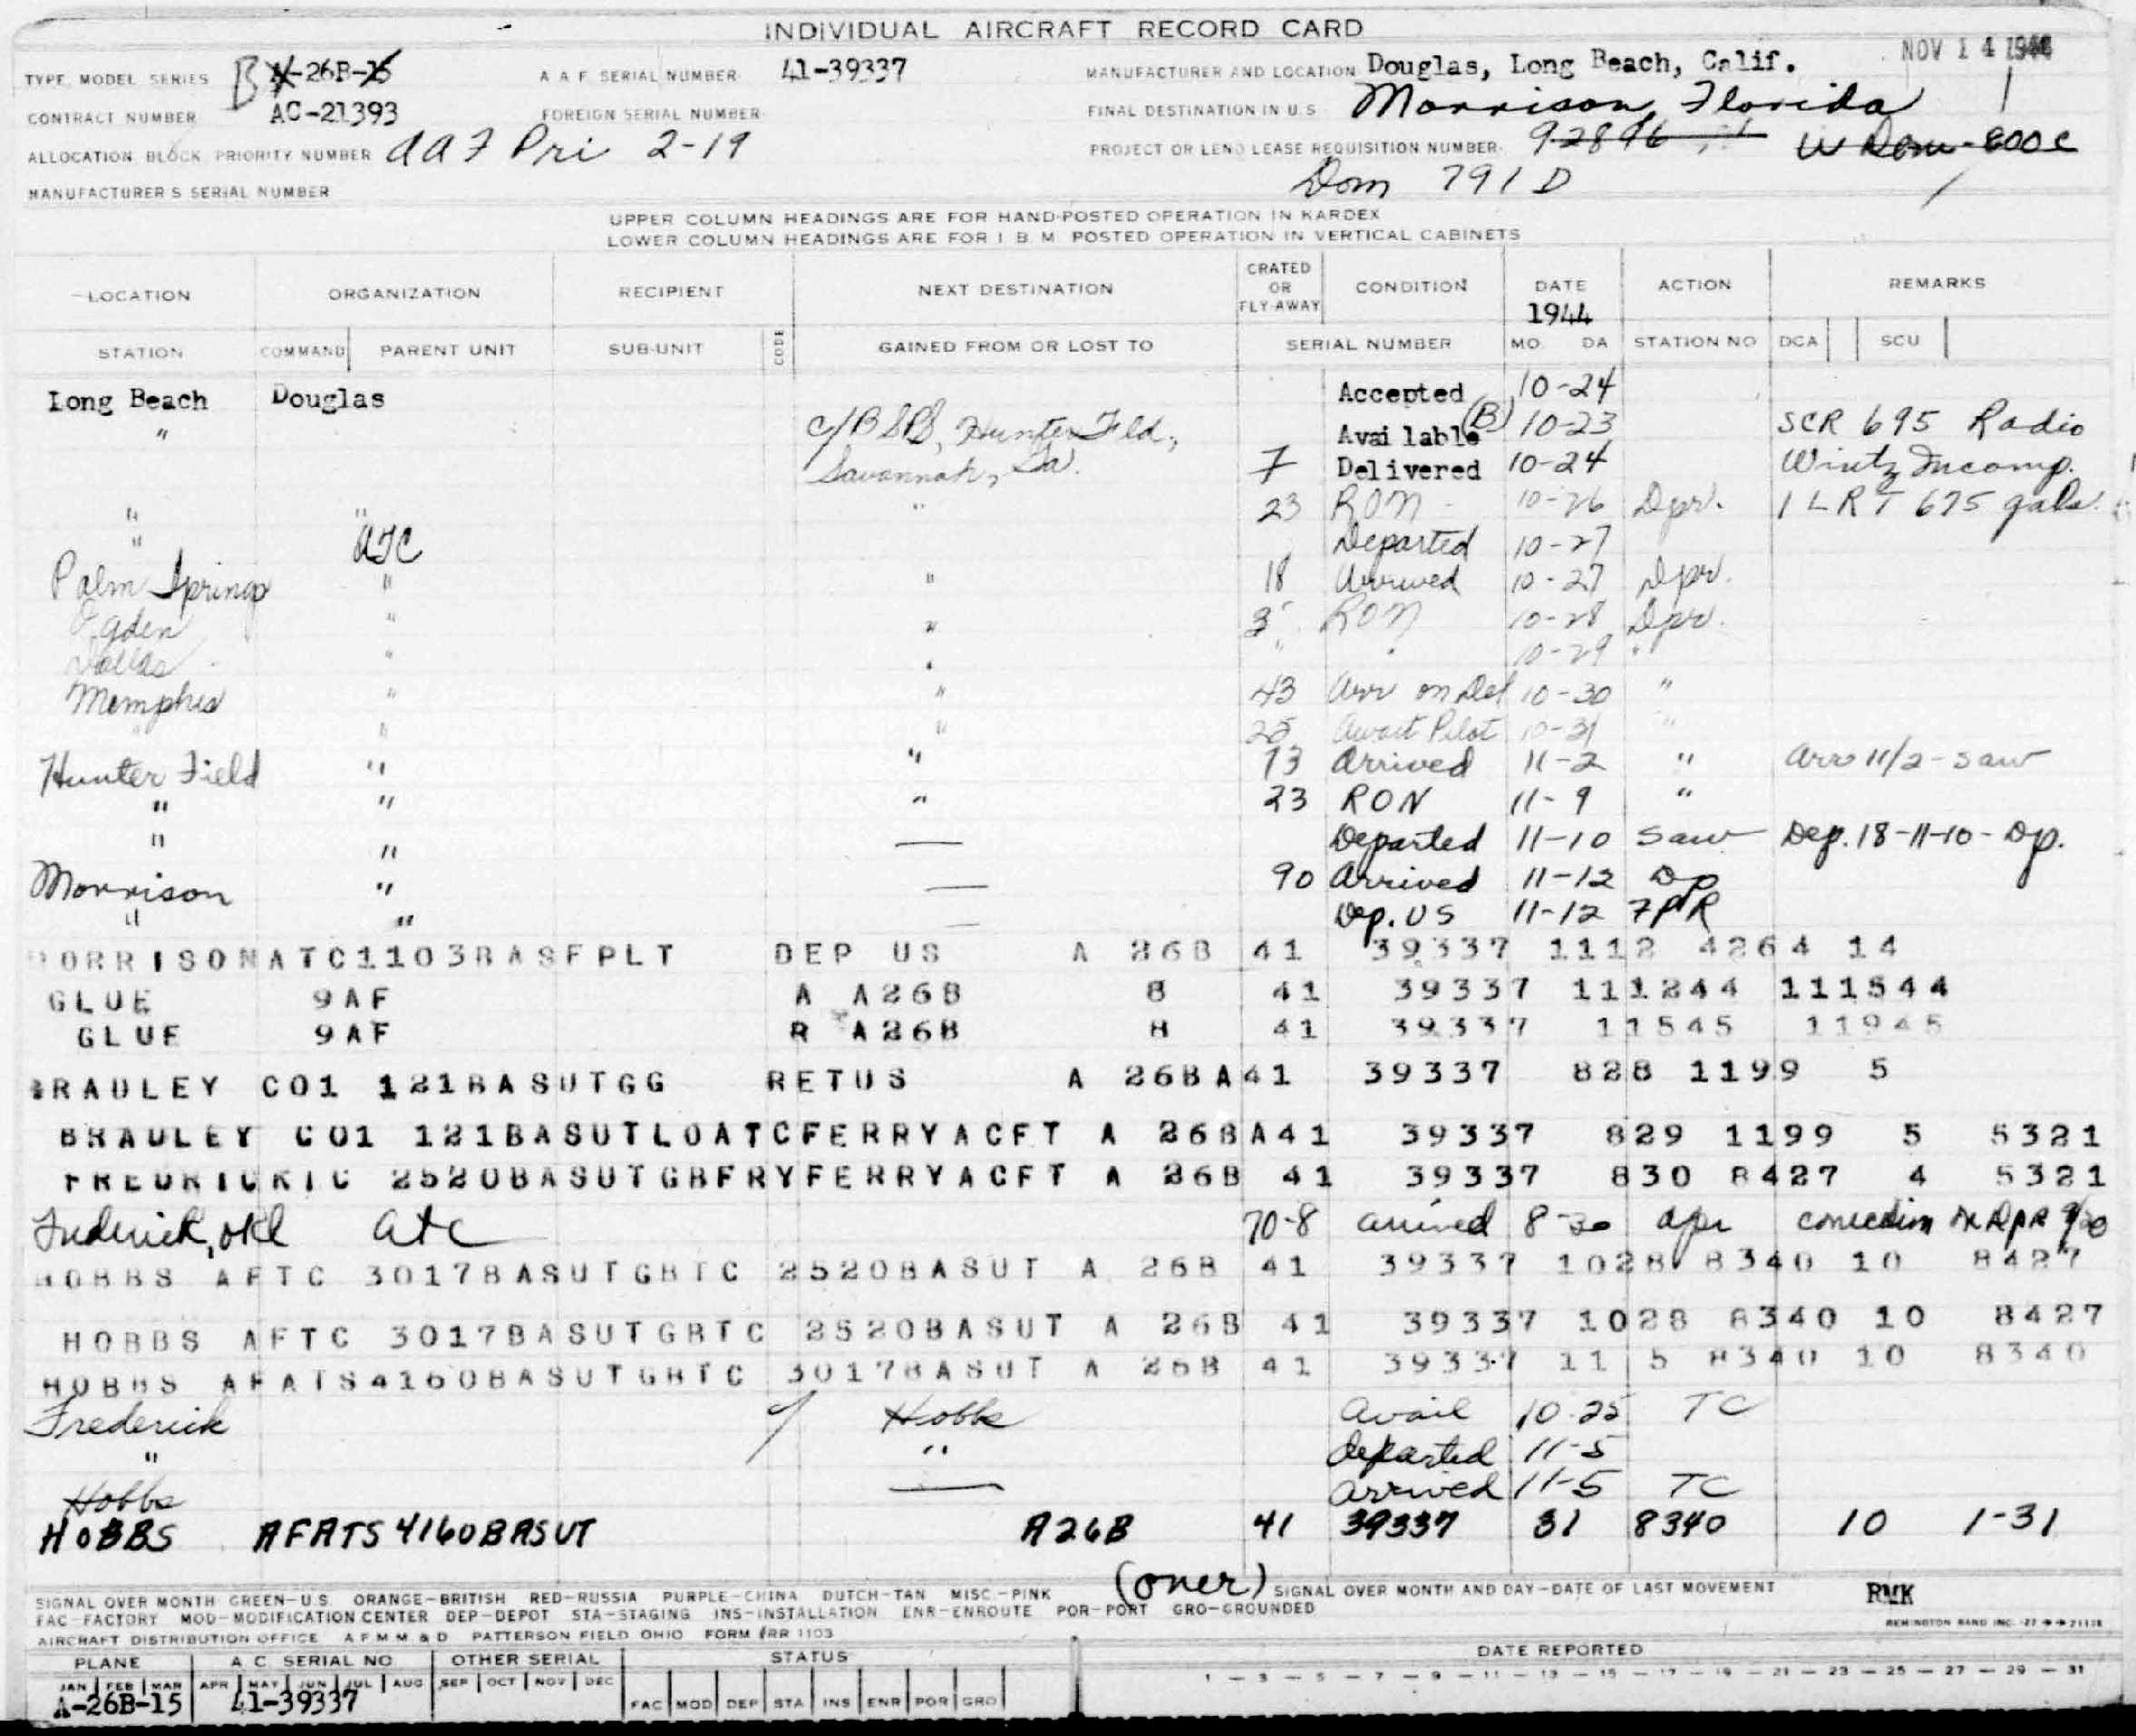 INDIVIDUAL AIRCRAFT RECORD CARD
NOV 14 1944
TYPE, MODEL SERIES B A-26B-15 A A F SERIAL NUMBER 41-39337 MANUFACTURER AND LOCATION Douglas, Long Beach, Calif.
CONTRACT NUMBER AC-21393 FOREIGN SERIAL NUMBER FINAL DESTINATION IN U S Morrison, Florida
ALLOCATION BLOCK PRIORITY NUMBER AAF Pri 2-19 PROJECT OR LEND LEASE REQUISITION NUMBER 92896
MANUFACTURER S SERIAL NUMBER Dom 791D
UPPER COLUMN HEADINGS ARE FOR HAND-POSTED OPERATION IN KARDEX
LOWER COLUMN HEADINGS ARE FOR I B M POSTED OPERATION IN VERTICAL CABINETS
LOCATION ORGANIZATION RECIPIENT NEXT DESTINATION CRATED OR FLY-AWAY CONDITION DATE 1944 ACTION REMARKS
STATION COMMAND PARENT UNIT SUB-UNIT CODE GAINED FROM OR LOST TO SERIAL NUMBER MO DA STATION NO DCA SCU
Long Beach Douglas Accepted 10-24
" Hunter Fld., Available (B) 10-23 SCR 695 Radio
Savannah, Ga. 7 Delivered 10-24 Wintz Incomp.
" " " 23 RON 10-26 Dpr. 1 LRT 675 gals.
" ATC Departed 10-27
Palm Springs " " 18 Arrived 10-27 Dpr.
Ogden " " 3 RON 10-28 Dpr.
Dallas " " " " 10-29 "
Memphis " " 43 Arr on Del 10-30 "
" " " 25 Await Pilot 10-31 "
Hunter Field " " 73 Arrived 11-2 " Arr 11/2 - saw
" " " 23 RON 11-9 "
" " — Departed 11-10 saw Dep. 18-11-10 - Dp.
Morrison " — 90 Arrived 11-12 Dp
" " — Dep. US 11-12 7PR
ORRISONATC1103BASFPLT DEP US A 26B 41 39337 1112 4264 14
GLUE 9AF A A26B 8 41 39337 111244 111544
GLUE 9AF R A26B 8 41 39337 11545 11945
BRADLEY CO1 121BASUTGG RETUS A 26BA41 39337 828 1199 5
BRADLEY CO1 121BASUTLOATCFERRYACFT A 26BA41 39337 829 1199 5 5321
FREDRICKTC 2520BASUTGBFRYFERRYACFT A 26B 41 39337 830 8427 4 5321
Frederick, Okl atc 70-8 arrived 8-30 dpr correction on DPR 9/20
HOBBS AFTC 3017BASUTGBTC 2520BASUT A 26B 41 39337 1028 8340 10 8427
HOBBS AFTC 3017BASUTGBTC 2520BASUT A 26B 41 39337 1028 8340 10 8427
HOBBS AFATS4160BASUTGBTC 3017BASUT A 26B 41 39337 11 5 8340 10 8340
Frederick Hobbs Avail 10-25 TC
" " departed 11-5
Hobbs — arrived 11-5 TC
HOBBS AFATS 4160BASUT A26B 41 39337 31 8340 10 1-31
(over)
SIGNAL OVER MONTH GREEN-U.S. ORANGE-BRITISH RED-RUSSIA PURPLE-CHINA DUTCH-TAN MISC.-PINK SIGNAL OVER MONTH AND DAY-DATE OF LAST MOVEMENT RMK
FAC-FACTORY MOD-MODIFICATION CENTER DEP-DEPOT STA-STAGING INS-INSTALLATION ENR-ENROUTE POR-PORT GRO-GROUNDED
AIRCRAFT DISTRIBUTION OFFICE A F M M & D PATTERSON FIELD OHIO FORM RR 1103 REMINGTON RAND INC.
PLANE A C SERIAL NO OTHER SERIAL STATUS DATE REPORTED
JAN FEB MAR APR MAY JUN JUL AUG SEP OCT NOV DEC 1 - 3 - 5 - 7 - 9 - 11 - 13 - 15 - 17 - 19 - 21 - 23 - 25 - 27 - 29 - 31
A-26B-15 41-39337 FAC MOD DEP STA INS ENR POR GRO